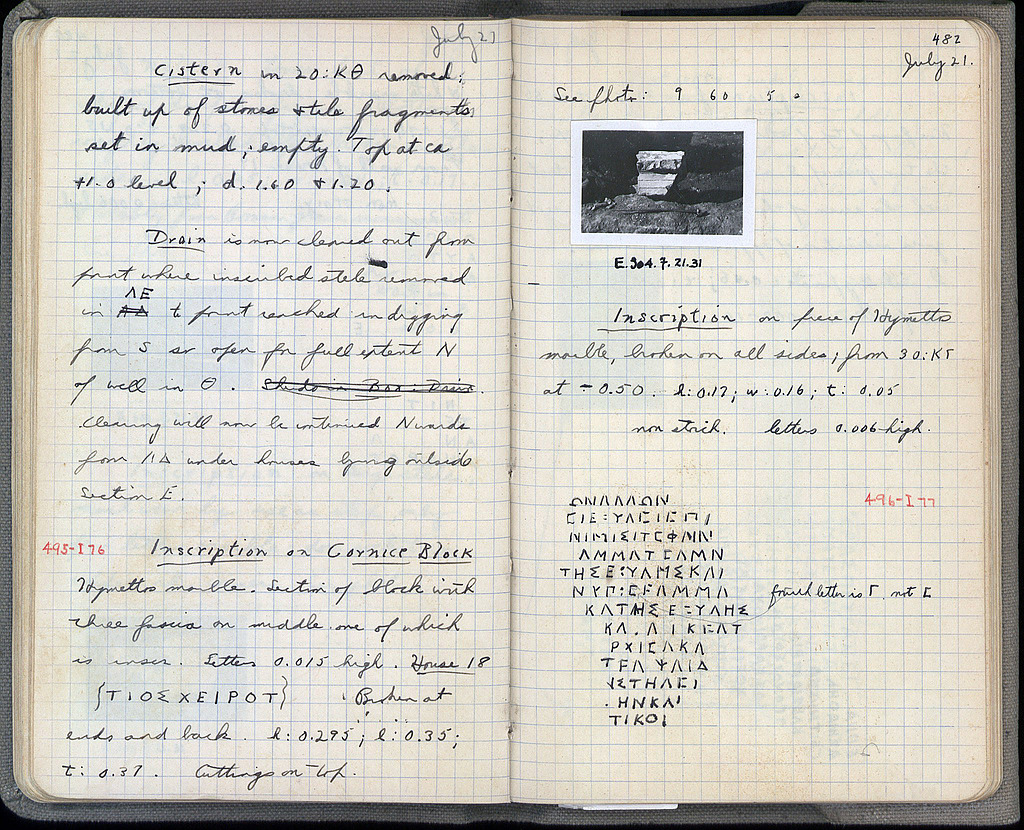 July 21
Cistern in 20:ΚΘ removed;
built up of stones & tile fragments
set in mud; empty. Top at ca
+1.0 level; d. 1.60 + 1.20.
Drain is now cleaned out from
point where inscribed stele removed
ΛΕ
in to point reached in digging
from S so open for full extent N
of well in Θ.
Clearing will now be continued Nwards
from ΛΔ under houses lying outside
Section E.
495-I 76 Inscription on Cornice Block
Hymettos marble. Section of block with
three fascia on middle one of which
is inscr. Letters 0.015 high. House 18
{ΤΙΟΣΧΕΙΡΟΤ} Broken at
ends and back. h: 0.295; l: 0.35;
t: 0.37. Cuttings on top.
482
July 21.
See photo: 9 60 5
E.304.7.21.31
Inscription on piece of Hymettos
marble, broken on all sides; from 30:ΚΓ
at -0.50. h: 0.17; w: 0.16; t: 0.05
non stoich. letters 0.006 high.
496-I 77
ΛΜΜΑΤ ΑΜΝ
ΤΗΣΕ:ΥΛΗΣΚΑΙ
fourth letter is Γ, not Ε
ΚΑΤΗΣΕΞΥΛΗΣ
ΡΧΙΕΛΚΛ
.ΗΝΚΑΙ
ΤΙΚΟΙ